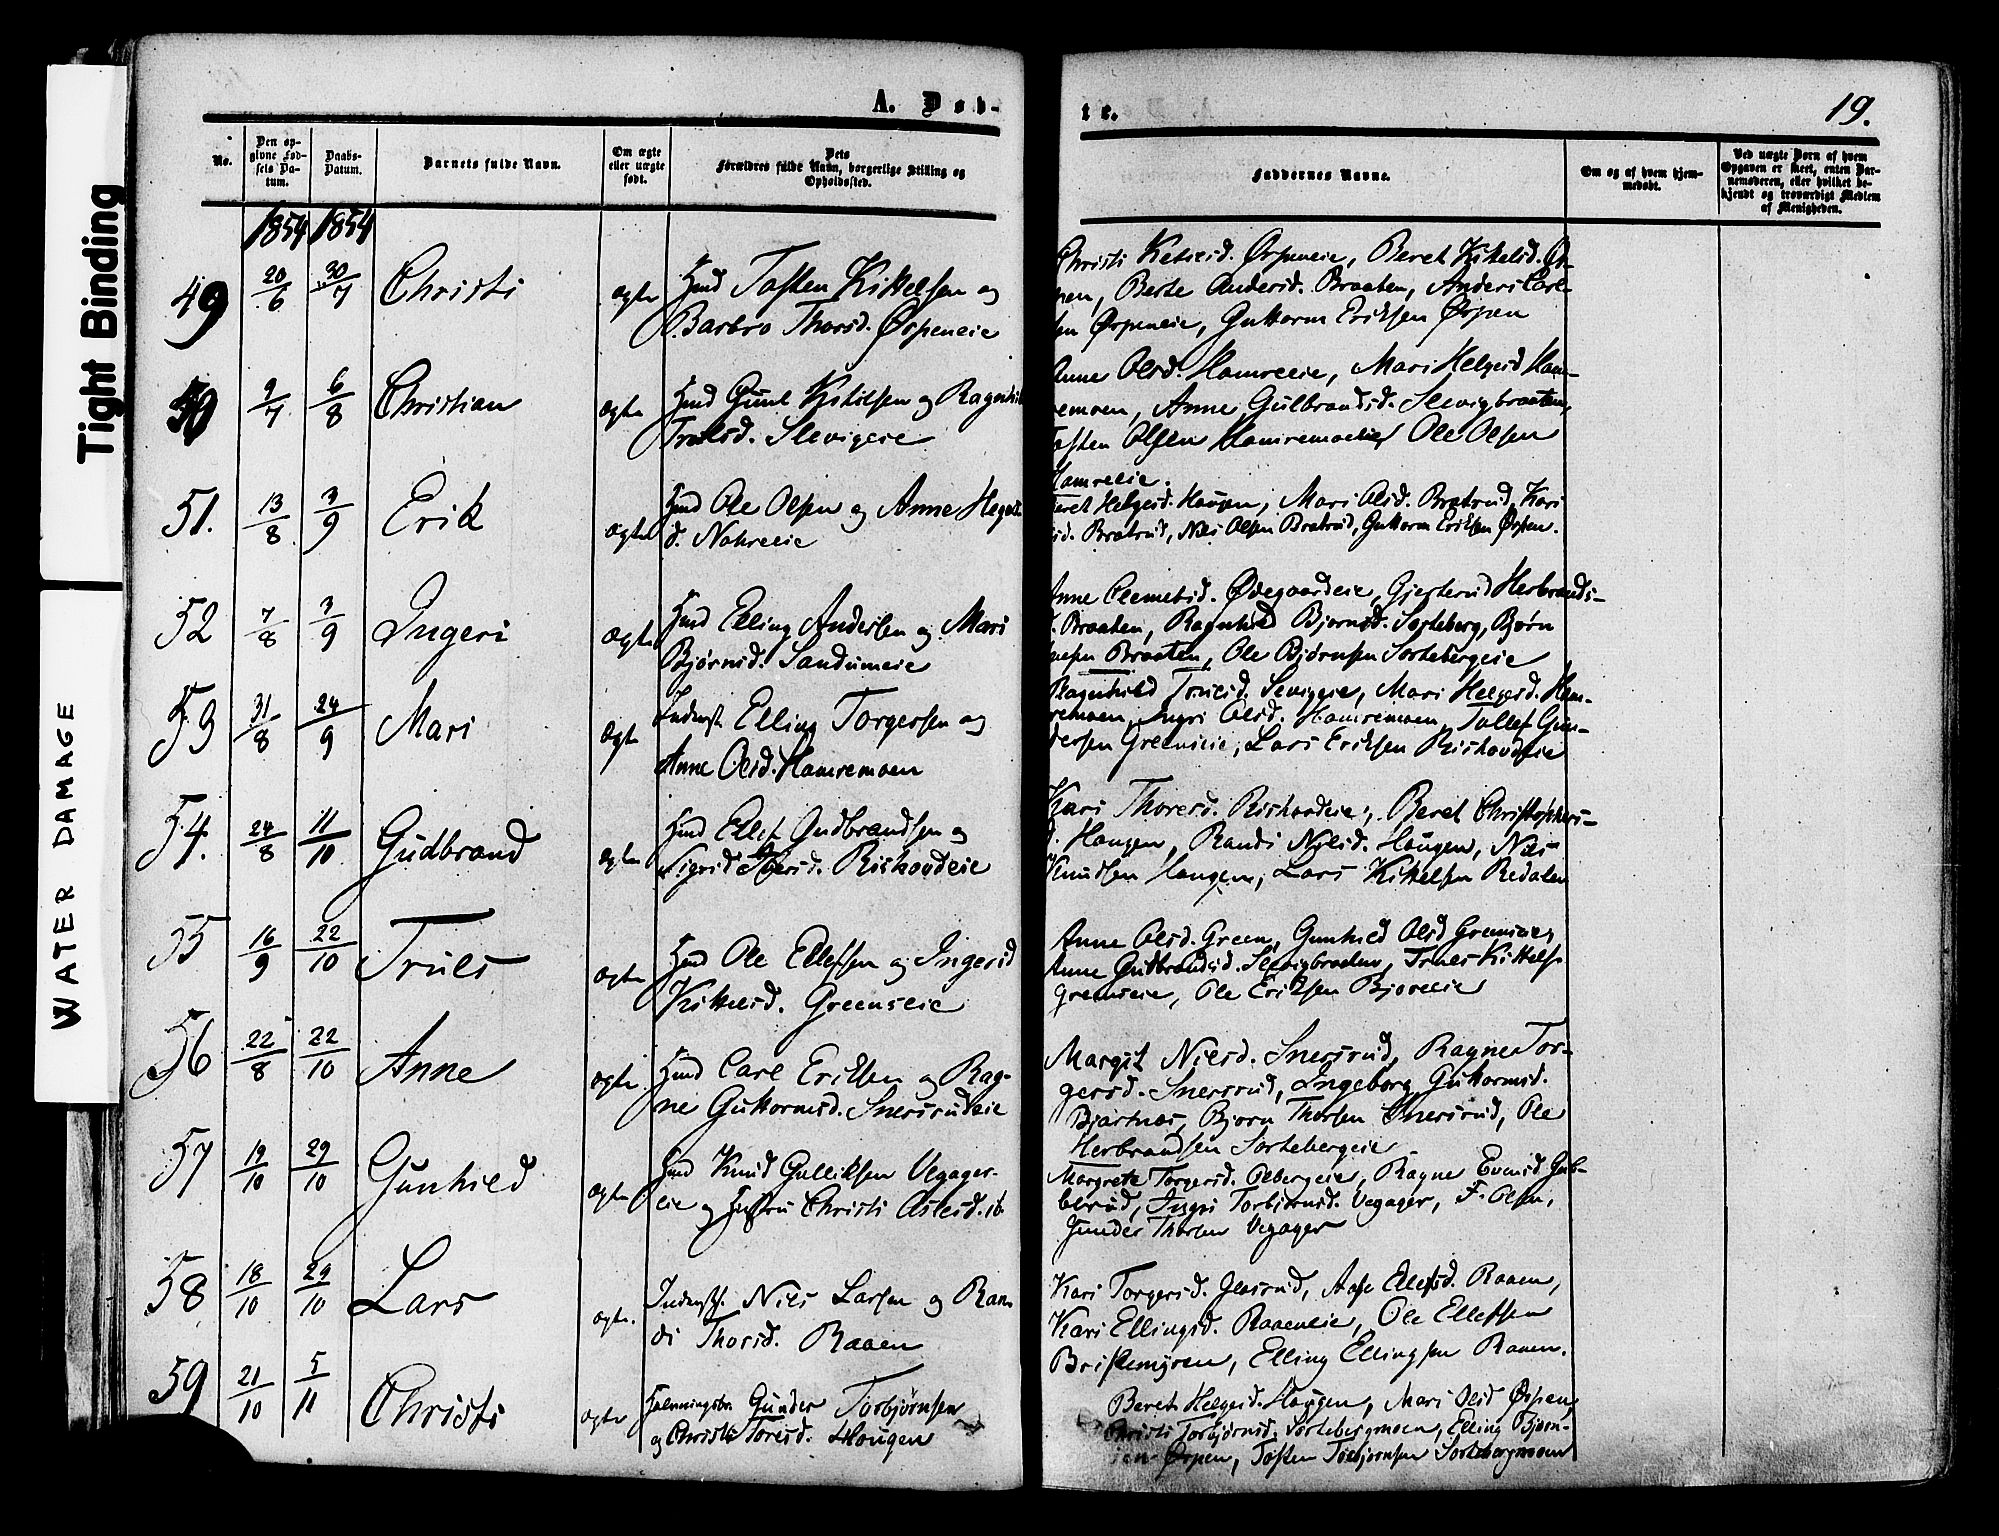 A. Døb-
te.
19.
Tight Binding
WATER DAMAGE
No.
Den op-
givne Fød-
sels Da-
tum.
Daabs-
Datum.
Barnets fulde Navn.
Om ægte
eller uægte
født.
Dets
Forældres fulde Navn, borgerlige Stilling og
Opholdssted.
Faddernes Navne.
Om og af hvem hjem-
medøbt.
Ved uægte Børn af hvem
Opgaven er skeet, enten Bar-
nemoderen, eller hvilket be-
kjendt og troværdigt Medlem
af Menigheden.
1854 1854
49 20/6 30/7 Christi ægte Hmd Tosten Kittelsen og
Barbro Thorsd. Ørpeneie
Christi Ketilsd. Ørpeneie, Beret Kittelsd. Ør-
pen, Berte Andersd. Braaten, Anders Carl-
sen Ørpeneie, Guttorm Eriksen Ørpen
50 9/7 6/8 Christian ægte Hmd Gunl Kittilsen og Ragnhild
Truelsd. Slevigeie
Anne Olsd. Hamreeie, Mari Helgesd Ham-
remoen, Anne Gulbrandsd. Slevigbraaten,
Tosten Olsen Hamremoeie Ole Olsen
Hamreeie.
51. 13/8 3/9 Erik ægte Hmd Ole Olsen og Anne Helges
d. Nahreeie
Beret Helgesd. Haugen, Mari Olsd. Bratrud, Kari
sd. Bratrud, Niels Olsen Bratrud, Guttorm Eriksen Ørpen.
52 7/8 3/9 Ingeri ægte Hmd Elling Andersen og Mari
Bjørnsd. Sandumeie
Anne Clemetsd. Ødegaardeie, Gjertrud Herbrands-
d. Braaten, Ragnhild Bjornsd. Sorteberg, Bjørn
Braaten, Ole Bjørnsen Sortebergeie
53 31/8 24/9 Mari ægte Inderst Elling Torgersen og
Anne Olsd. Hamremoen
Ragnhild Truelsd. Slevigeie, Mari Helgesd. Ham-
remoen, Ingri Olsd. Hamremoen, Tollef Gun-
dersen Greenseie, Lars Eriksen Rishovdeie
54. 24/8 11/10 Gudbrand ægte Hmd Ellef Gudbrandsen og
Sigrid Iversd. Rishovdeie
Kari Thoresd. Rishovdeie, Beret Christophers-
d. Haugen, Randi Nilsd. Haugen, Niels
Knudsen Haugen, Lars Kittelsen Redalen
55 16/9 22/10 Truls ægte Hmd Ole Ellefsen og Ingerid
Kittilsd. Greenseie
Anne Olsd. Green, Gunhild Olsd Greenseie,
Anne Gudbrandsd. Slevigbraaten, Truls Kittels
Greenseie, Ole Eriksen Bjøreeie
56 22/8 22/10 Anne ægte Hmd Carl Eriksen og Rag-
ne Guttormsd. Snersrudeie
Margit Nilsd. Snersrud, Ragne Tor-
gersd. Snersrud, Ingeborg Guttormsd.
Bjørtnæs, Bjorn Thorsen Snersrud, Ole
Herbrandsen Sortebergeie
57 19/10 29/10 Gunhild ægte Hmd Knud Gulliksen Vegager-
eie og Hustru Christi Aslesd. ib.
Margrete Torgersd. Olbergeie, Ragne Evensd. Gub-
berud, Ingri Torbjørnsd. Vegager, F. Olsen,
Gunder Thorsen Vegager
58 18/10 29/10 Lars ægte. Inderst. Niels Larsen og Ran
di Thorsd. Raaen
Kari Torgersd. Glesrud, Aase Ellefsd. Raaen,
Kari Ellingsd. Raaeneie, Ole Ellefsen
Briskemyren, Elling Ellingsen Raaen.
59 21/10 5/11 Christi ægte Gunder Torbjørnsen
og Christi Toresd. Haugen
Beret Helgesd. Haugen, Mari Olsd Ørpen,
Christi Torbjørnsd. Sortebergmoen, Elling Bjørn-
sen Ørpen, Tosten Torbjørnsen Sortebergmoen